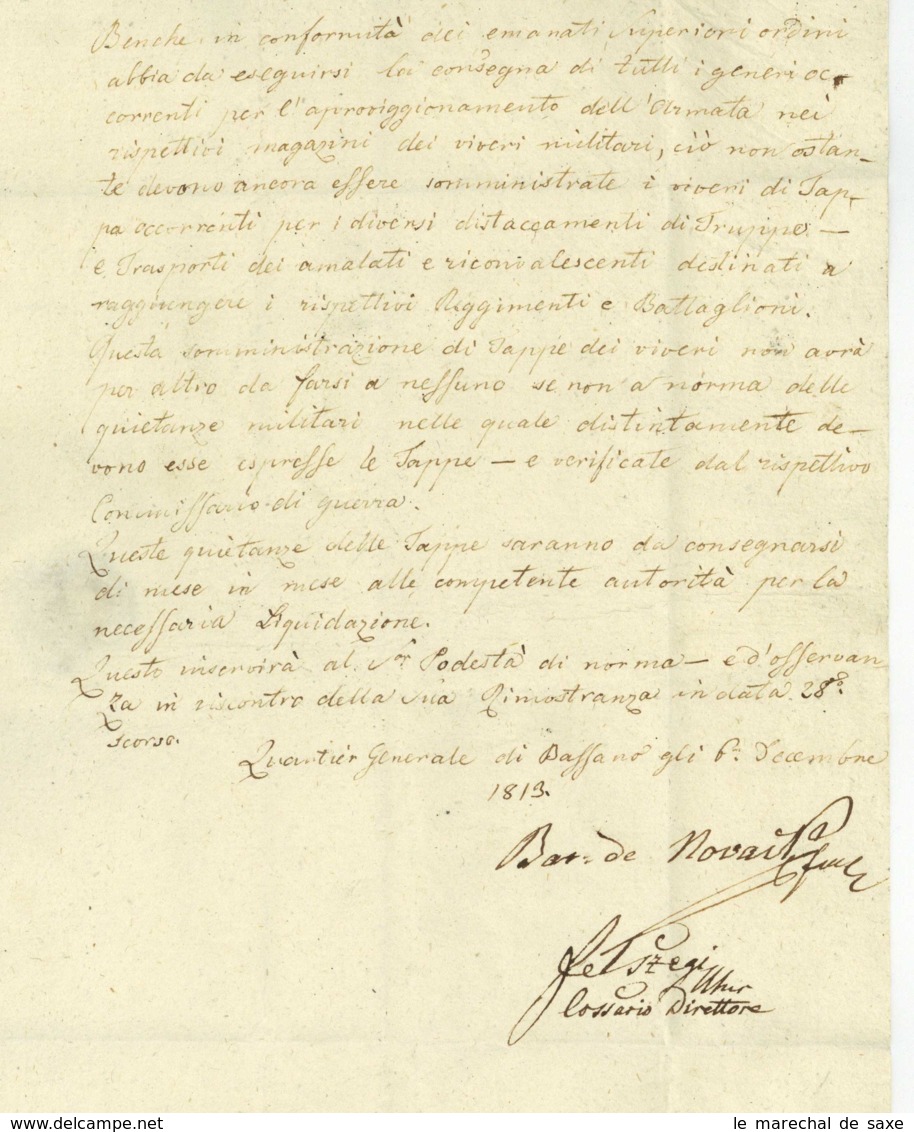 Benche in conformità dei emanati Superiori ordini
abbia da eseguirsi la consegna di tutti i generi oc-
correnti per l'aproviggionamento dell'Armata nei
rispettivi magazini dei viveri militari, ciò non ostan-
te devono ancora essere somministrate i viveri di Tap-
pa occorrenti per i diversi distaccamenti di Truppe —
e Trasporti dei amalati e riconvalescenti destinati a
raggiungere i rispettivi Reggimenti e Battaglioni.
Questa somministrazione di Tappe dei viveri non avrà
per altro da farsi a nessuno se non a norma delle
quietanze militari nelle quale distintamente de-
vono esse espresse le Tappe — e verificate dal rispettivo
Commissario di guerra.
Queste quietanze delle Tappe saranno da consegnarsi
di mese in mese alle competente autorità per la
necessaria Liquidazione.
Questo inservirà al Sor Podestà di norma — e d'osservan-
za in riscontro della Sua Rimostranza in data 28o
scorso.
Quartier Generale di Bassano gli 6r Decembre
1813.
Bar: de
Felszegi
Cossario Direttore
delcampe.net
le marechal de saxe